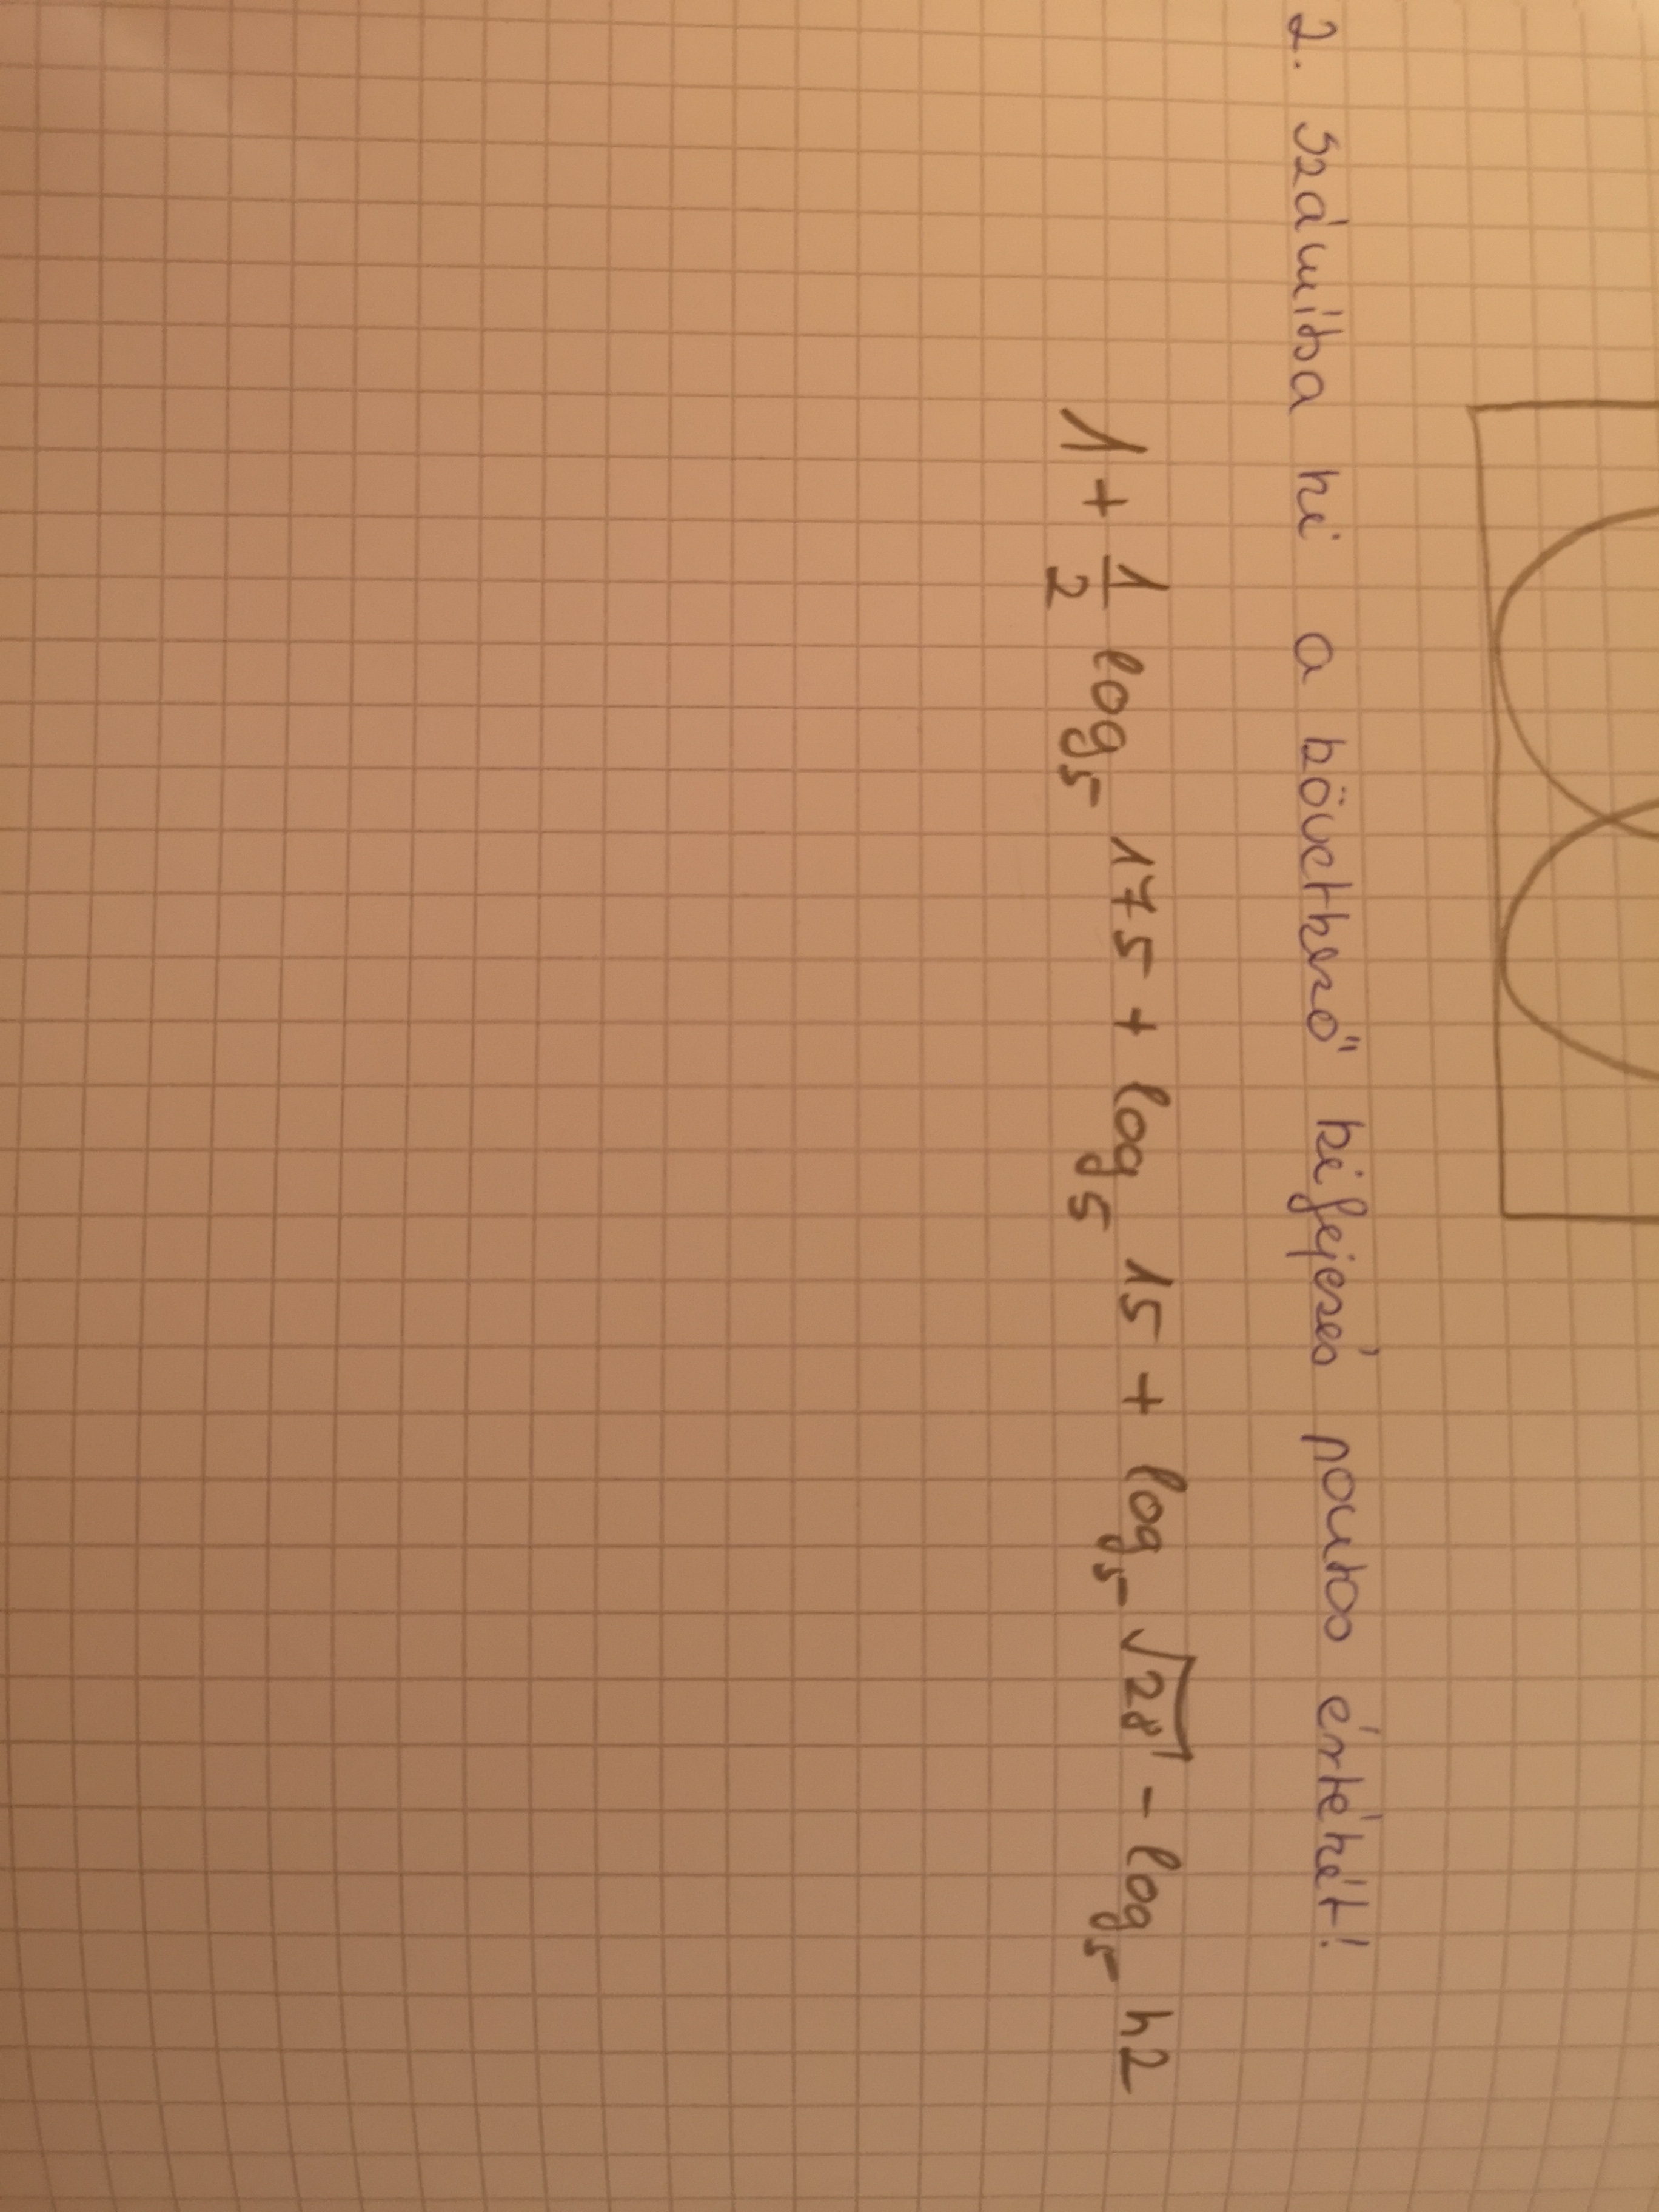 2. Számítsa ki a következő kifejezés pontos értékét!
1 + 1/2 log₅ 175 + log₅ 15 + log₅ √28 - log₅ 42